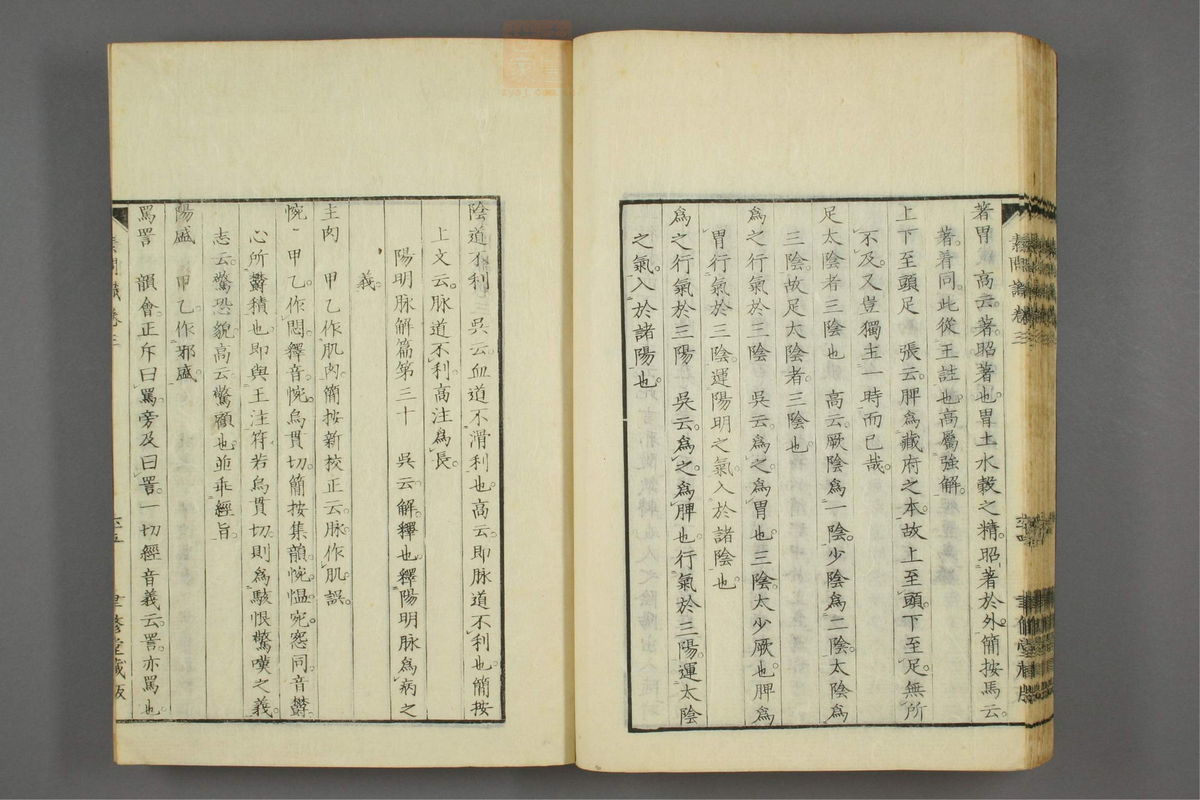 著胃　高云。著。昭著也。胃土水穀之精。昭著於外。簡按馬云。
著。着同。此從王註也。高屬強解。
上下至頭足　張云。脾爲藏府之本。故上至頭。下至足。無所
不及。又豈獨主一時而已哉。
足太陰者三陰也　高云。厥陰爲一陰。少陰爲二陰。太陰爲
三陰。故足太陰者。三陰也。
爲之行氣於三陰　吳云。爲之。爲胃也。三陰。太少厥也。脾爲
胃行氣於三陰。運陽明之氣。入於諸陰也
爲之行氣於三陽　吳云。爲之。爲脾也。行氣於三陽。運太陰
之氣。入於諸陽也。
陰道不利　吳云。血道不滑利也。高云。即脉道不利也。簡按
上文云。脉道不利。高注爲長。
陽明脉解篇第三十　吳云。解。釋也。釋陽明脉爲病之
義。
主肉　甲乙作肌肉。簡按新校正云。脉作肌。誤。
惋　甲乙作悶。釋音。惋。烏貫切。簡按集韻。惋。愠。宛。窓同。音鬱。
心所鬱積也。即與王注符。若烏貫切。則爲駭恨驚嘆之義。
志云。驚恐貌。高云。驚顧也。並乖經旨。
陽盛　甲乙作邪盛。
罵詈　韻會。正斥曰罵。旁及曰詈。一切經音義云。詈。亦罵也。
素問識卷三
聿修堂藏版